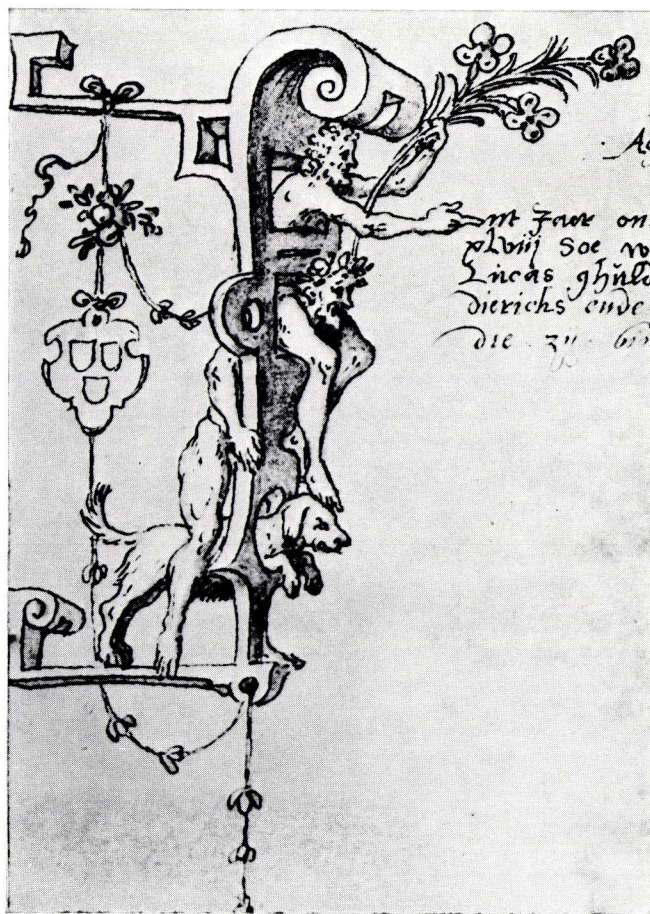 Ag
Int Jaer on
xlviij Soe w
Lucas ghuld
dierichs ende
die zij bin